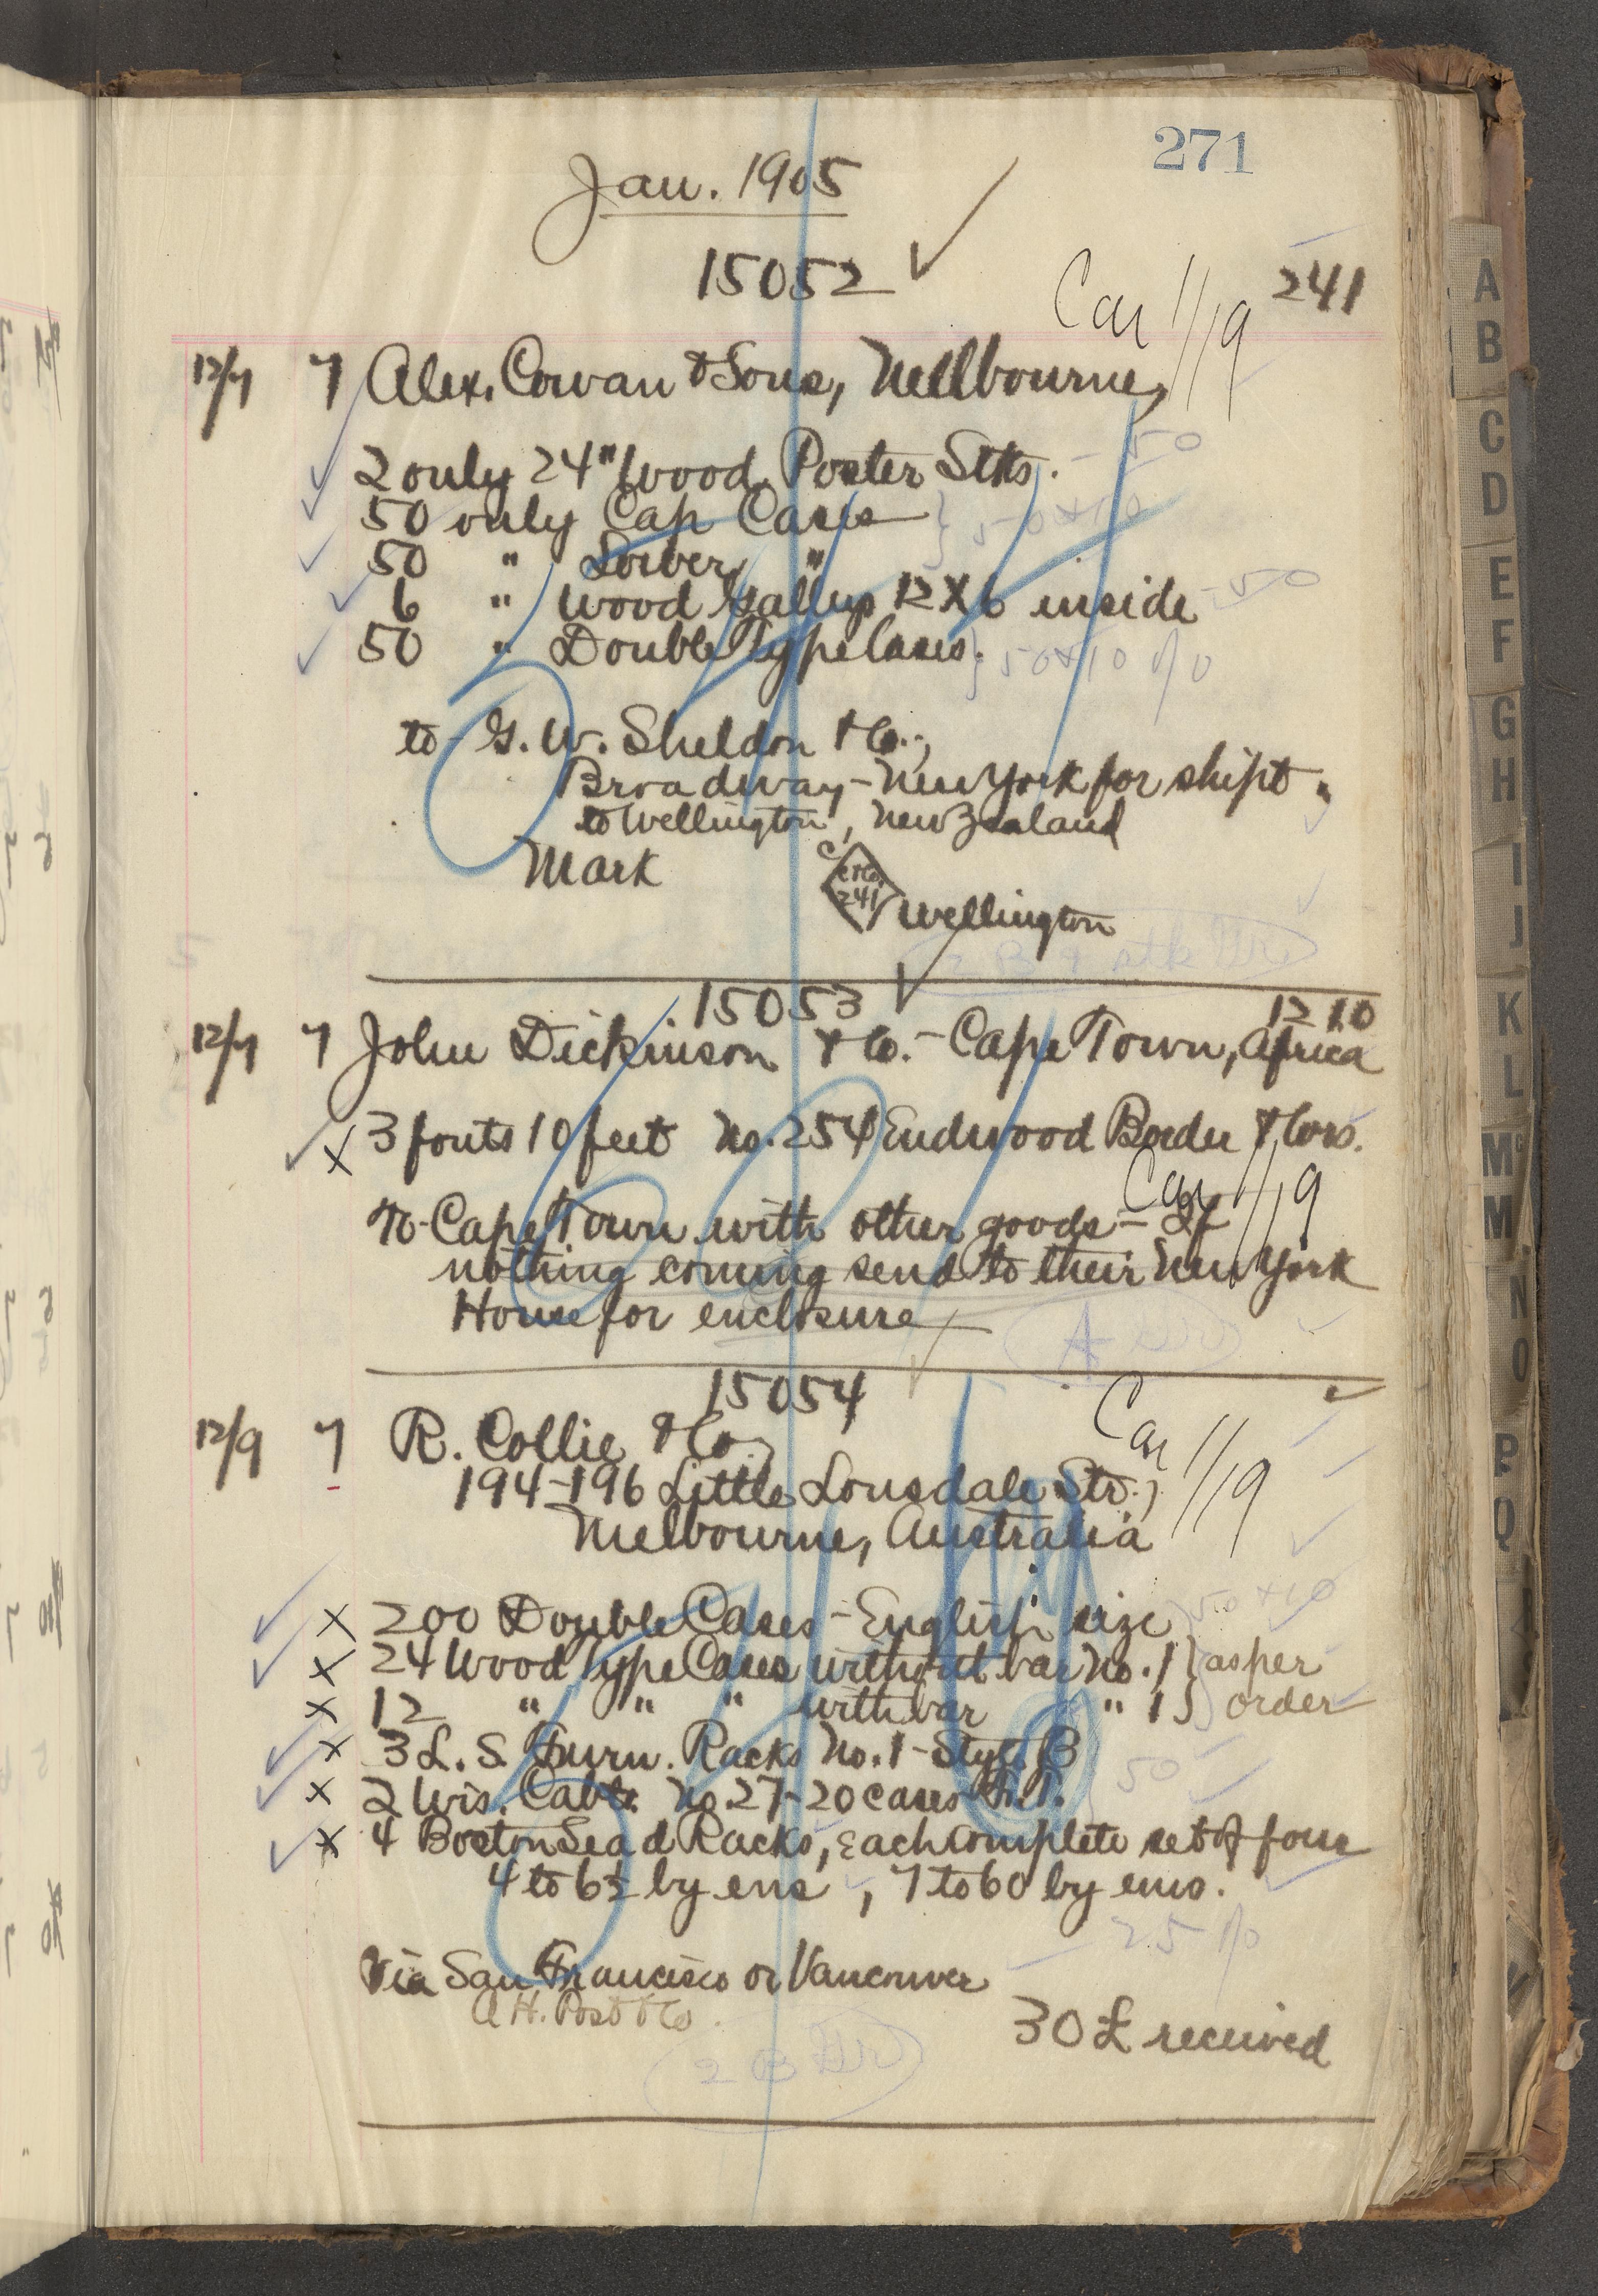 271
Jan. 1905
15052
Car 1/19 241
12/7 7 Alex. Cowan & Sons, Mellbourne,
2 only 24" Wood Poster Stks. - 50
50 only Cap Cases } 50 + 10
50 " Lower "
6 " Wood Gallys 12 X 6 inside - 50
50 " Double Type Cases. } 50 + 10 %
to - G. W. Sheldon & Co.,
Broadway - New York for shipt.
to Wellington, New Zealand
Mark
C
C & Co
241
Wellington
15053
1210
12/7 7 John Dickinson & Co. - Cape Town, Africa
X 3 fonts 10 feet No. 254 Endwood Border & Cors.
Car 1/19
To - Cape Town with other goods - If
nothing coming send to their New York
House for enclosure
15054
Car 1/19
12/9 7 R. Collie & Co.
194-196 Little Lonsdale Str.,
Melbourne, Australia
X 200 Double Cases - English size } 50 + 10
X 24 Wood Type Cases without bar No. 1 } as per
X 12 " " " with bar " 1 } order
X 3 L. S. Furn. Racks No. 1 - Style B
X 2 Wis. Cabts. No. 27 - 20 cases } 50
X 4 Boston Lead Racks, Each complete set of four
4 to 6½ by ens, 7 to 60 by ems.
25 %
Via San Francisco or Vancouver
A. H. Post & Co.
30 £ received